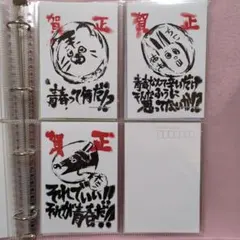 賀 正
青春って何だ!?
賀 正
青春なんて辛いだけ
そんなふうに
思ってないか!?
賀 正
それでいい!!
それが青春だ!!